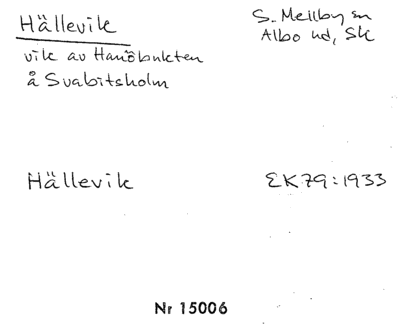 Hällevik
S. Mellby sn
Albo hd, Sk
vik av Hanöbukten
å Svabitsholm
Hällevik
EK79:1933
Nr 15006